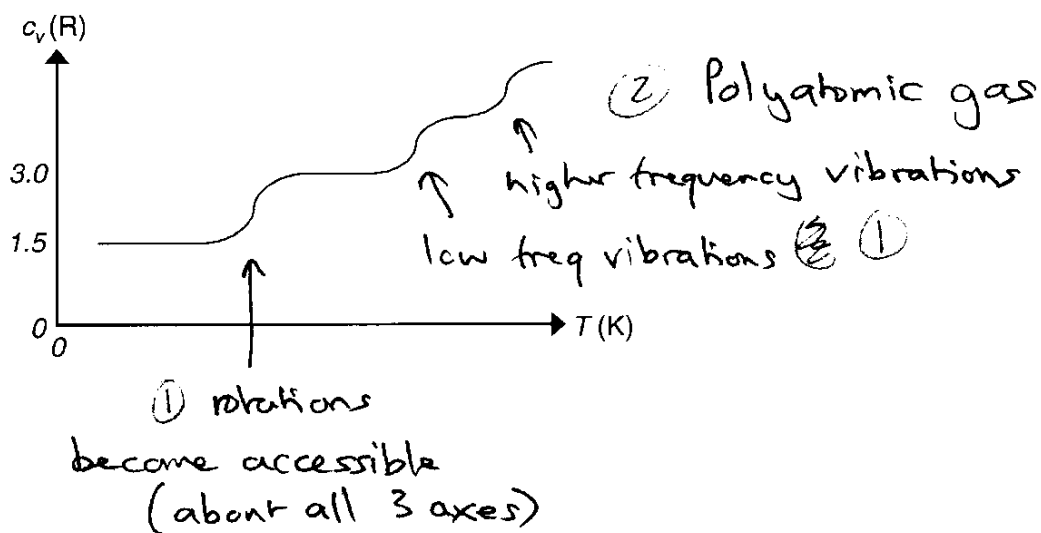 c_v (R)
② Polyatomic gas
3.0
higher frequency vibrations
1.5
low freq vibrations ①
0
T (K)
0
① rotations
become accessible
(about all 3 axes)